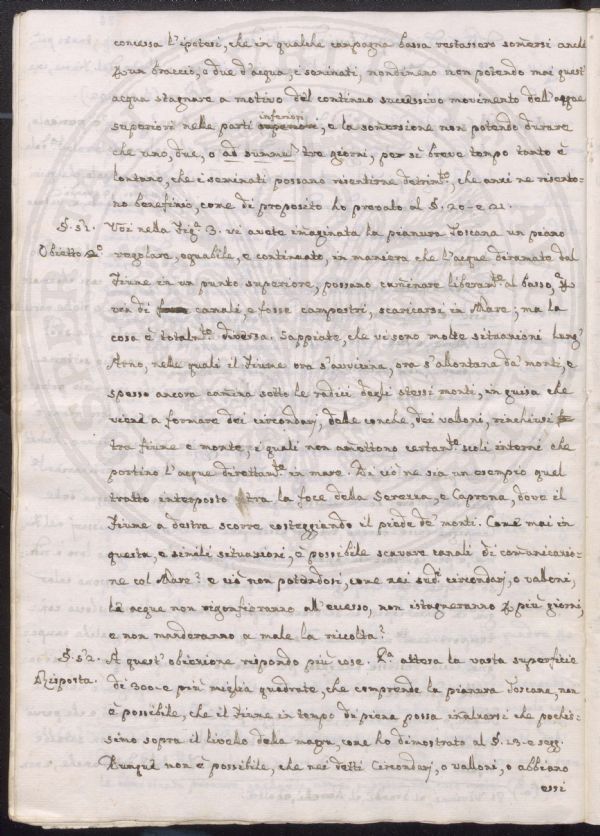 concessa l'ipotesi, che in qualche campagna bassa restassero somersi anche
p un braccio, o due d'acqua, i seminati, nondimeno non potendo mai quest'
acqua stagnare a motivo del continuo successivo movimento dell'acque
superiori nelle parti superiori inferiori, e la somersione non potendo durare
che uno, due, o ad summu tre giorni, per sì breve tempo tanto è
lontano, che i seminati possano risentirne detrimto, che anzi ne risento-
no benefizio, come di proposito ho provato al §. 20. e 21.
§. 51. Voi nella Figa 3. vi avete imaginata la pianura Toscana un piano
Obietto 2o regolare, equabile, e continuato, in maniera che l'acque diramate dal
Fiume in un punto superiore, possano caminare liberamte al basso, e p
via di canali e fosse campestri, scaricarsi in Mare; ma la
cosa è totalmte diversa. Sappiate, che vi sono molte situazioni lung'
Arno, nelle quali il Fiume ora s'avvicina, ora s'allontana da' monti, e
spesso ancora camina sotto le radici degli stessi monti, in guisa che
viene a formare dei circondarj, delle conche, dei valloni, rinchiusi
tra fiume e monte, i quali non amettono certamte scoli interni che
portino l'acque direttamte in mare. Di ciò ne sia un esempio quel
tratto interposto tra la foce della Serezza, e Caprona, dove il
Fiume a destra scorre costeggiando il piede de' monti. Come mai in
queste, e simili situazioni, è possibile scavare canali di comunicazio-
ne col Mare? e ciò non potendosi, come nei sudi circondarj, o valloni,
le acque non rigonfieranno all'eccesso, non istagneranno p più giorni,
e non manderanno a male la ricolta?
§. 52. A quest'obiezione rispondo più cose. Pa attesa la vasta superficie
Risposta. di 300 e più miglia quadrate, che comprende la pianura Toscana, non
è possibile, che il Fiume in tempo di piena possa inalzarsi che pochis-
simo sopra il livello della magra, come ho dimostrato al §. 13. e segg.
Dunque non è possibile, che nei detti Circondarj, o valloni, o abbiano
essi